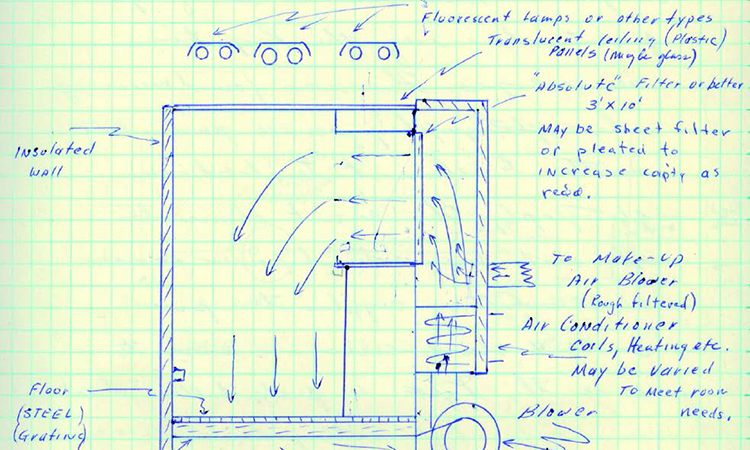 Fluorescent Lamps or other types
Translucent Ceiling (Plastic)
Panels (Maybe glass)
"Absolute" Filter or better
3' x 10'
MAY be sheet filter
or pleated to
increase cap'ty as
req'd.
Insulated
WALL
To Make-up
Air Blower
(Rough filtered)
Air Conditioner
Coils, Heating etc.
May be varied
To Meet room
needs.
Floor
(STEEL)
(Grating)
Blower